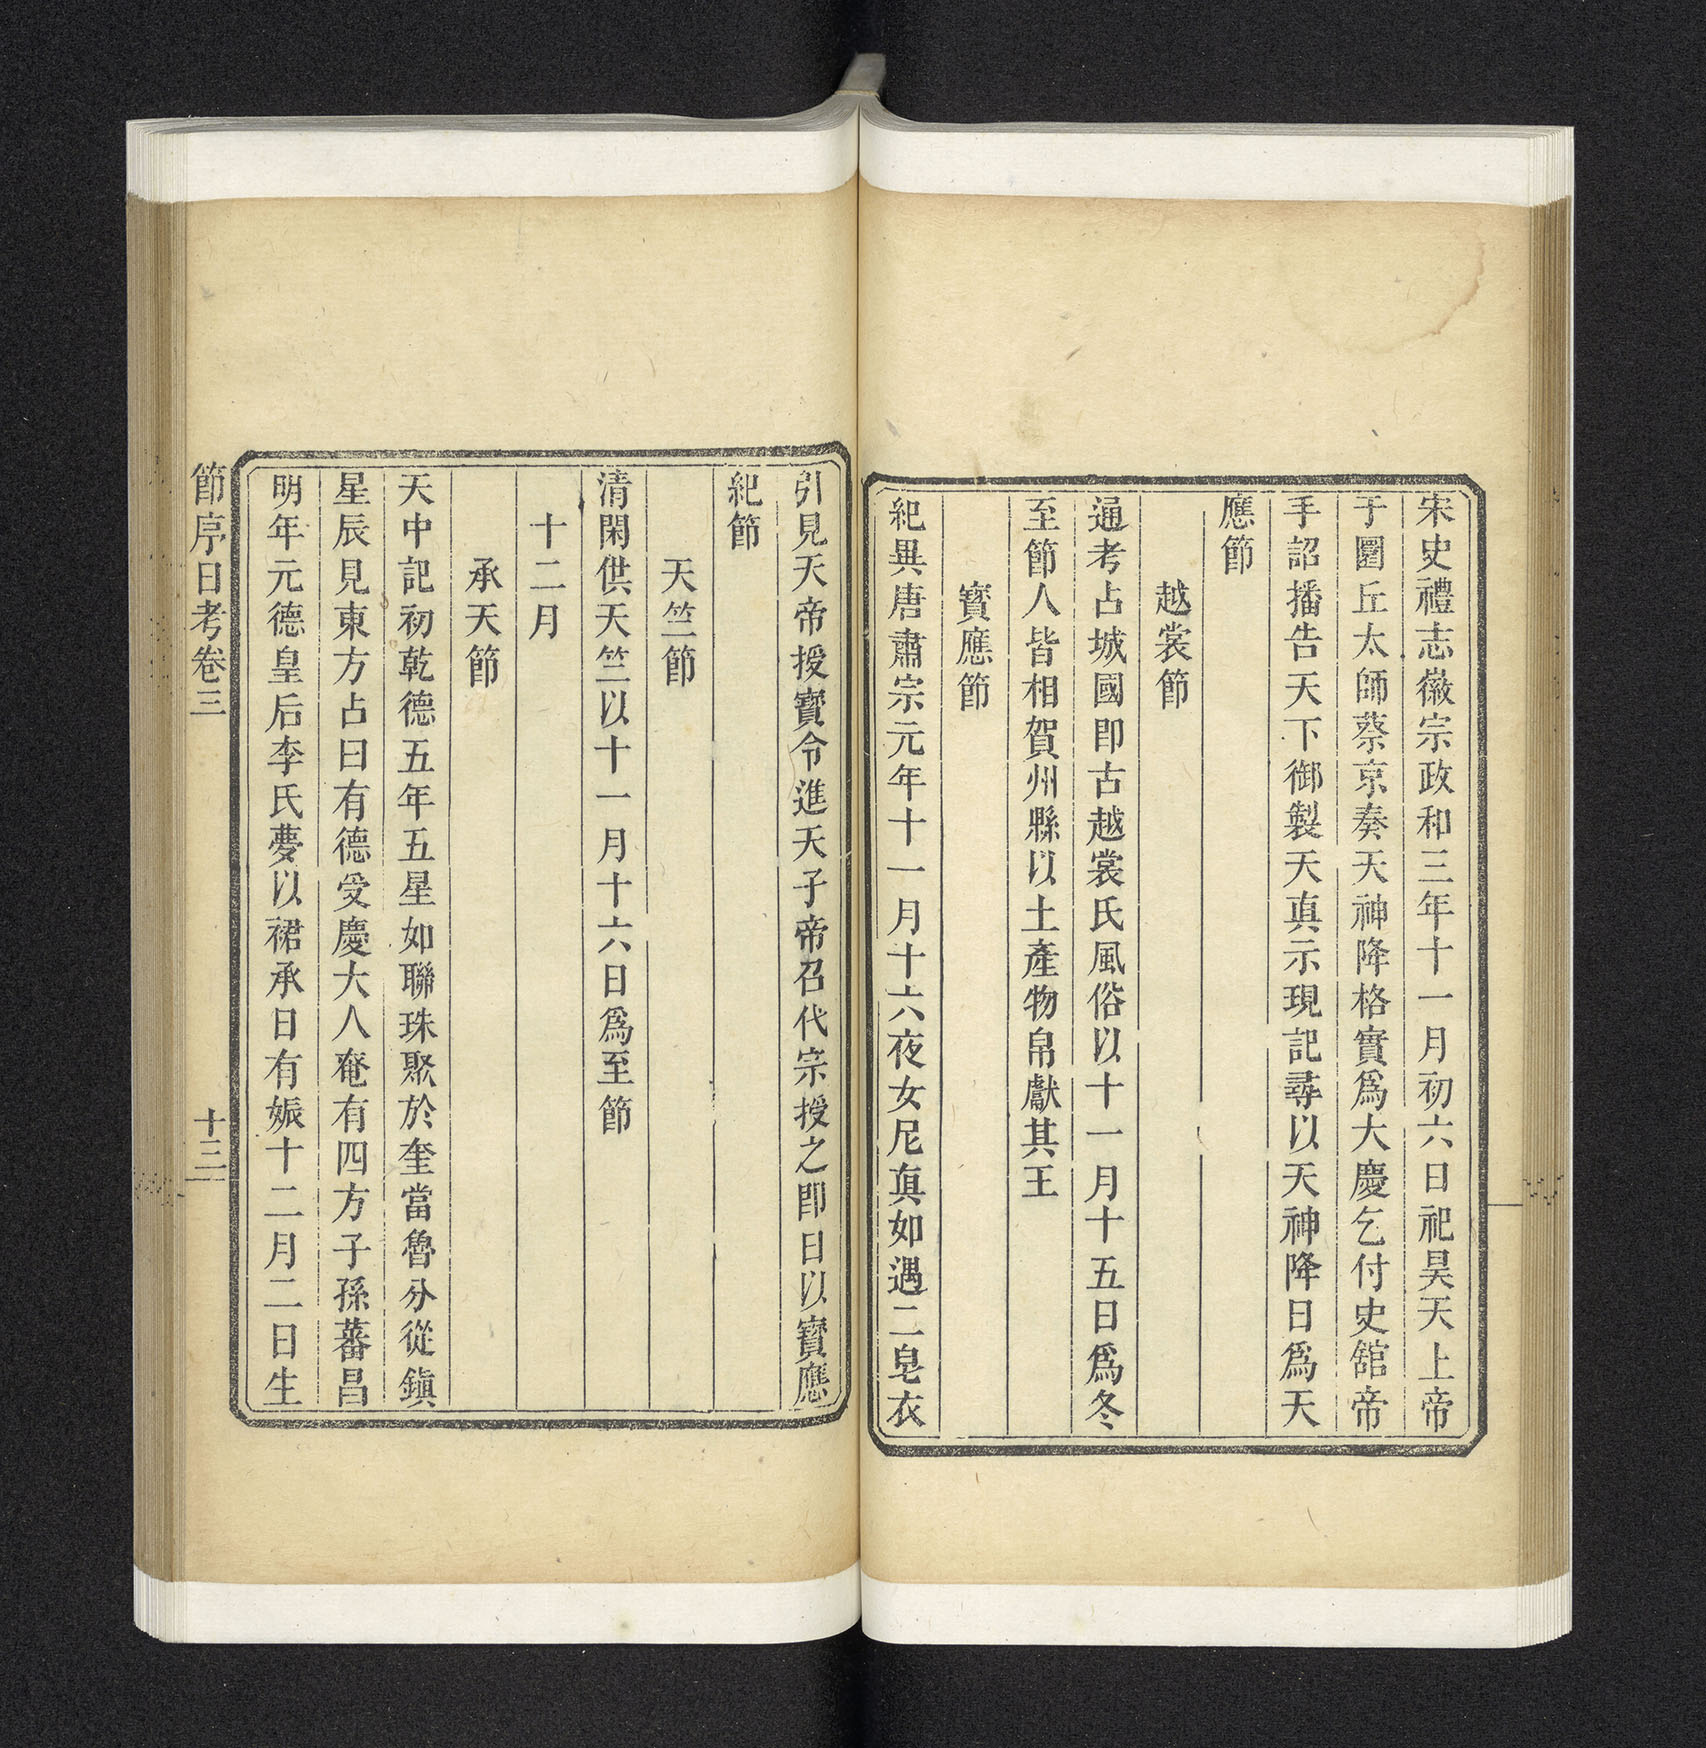 宋史禮志徽宗政和三年十一月初六日祀昊天上帝
于圜丘太師蔡京奏天神降格實爲大慶乞付史舘帝
手詔播告天下御製天眞示現記尋以天神降日爲天
應節
越裳節
通考占城國即古越裳氏風俗以十一月十五日爲冬
至節人皆相賀州縣以土產物帛獻其王
寶應節
紀異唐肅宗元年十一月十六夜女尼眞如遇二皂衣
引見天帝授寶令進天子帝召代宗授之即日以寶應
紀節
天竺節
清閑供天竺以十一月十六日爲至節
十二月
承天節
天中記初乾德五年五星如聯珠聚於奎當魯分從鎭
星辰見東方占曰有德受慶大人奄有四方子孫蕃昌
明年元德皇后李氏夢以裙承日有娠十二月二日生
節序日考卷三
十三